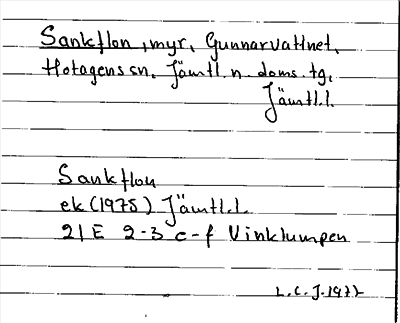 Sankflon, myr, Gunnarvattnet,
Hotagens sn. Jämtl. n. doms. tg.
Jämtl.l.
Sankflon
ek (1975) Jämtl.l.
21 E 2-3 c-f Vinklumpen
L.C.J. 1977